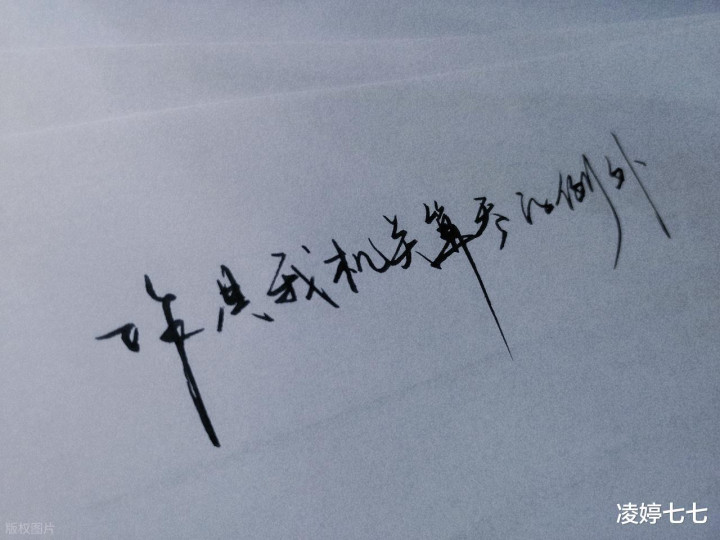 许是我机关算尽的例外
版权图片
凌婷七七